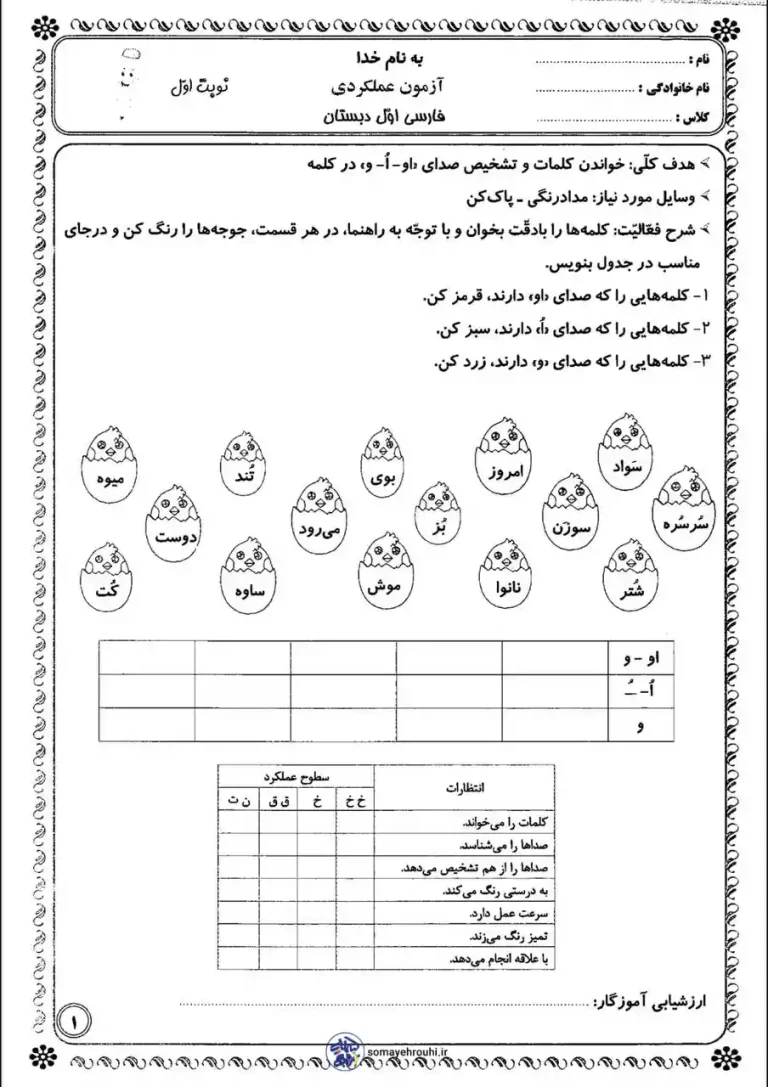 نام : ........................................ به نام خدا
نام خانوادگی : .......................... آزمون عملکردی نوبت اوّل
کلاس : ................................... فارسی اوّل دبستان
➢ هدف کلّی: خواندن کلمات و تشخیص صدای «او- اُ- و» در کلمه
➢ وسایل مورد نیاز: مدادرنگی ـ پاک‌کن
➢ شرح فعّالیّت: کلمه‌ها را بادقّت بخوان و با توجّه به راهنما، در هر قسمت، جوجه‌ها را رنگ کن و درجای
مناسب در جدول بنویس.
۱- کلمه‌هایی را که صدای «او» دارند، قرمز کن.
۲- کلمه‌هایی را که صدای «اُ» دارند، سبز کن.
۳- کلمه‌هایی را که صدای «و» دارند، زرد کن.
سَواد امروز بوی تُند میوه
سُرسُره سوزَن بُز می‌رود دوست
شُتر نانوا موش ساوه کُت
او - و
اُ- ـُ
و
انتظارات سطوح عملکرد
خ خ خ ق ق ن ت
کلمات را می‌خواند.
صداها را می‌شناسد.
صداها را از هم تشخیص می‌دهد.
به درستی رنگ می‌کند.
سرعت عمل دارد.
تمیز رنگ می‌زند.
با علاقه انجام می‌دهد.
ارزشیابی آموزگار: ........................................
۱
somayehrouhi.ir